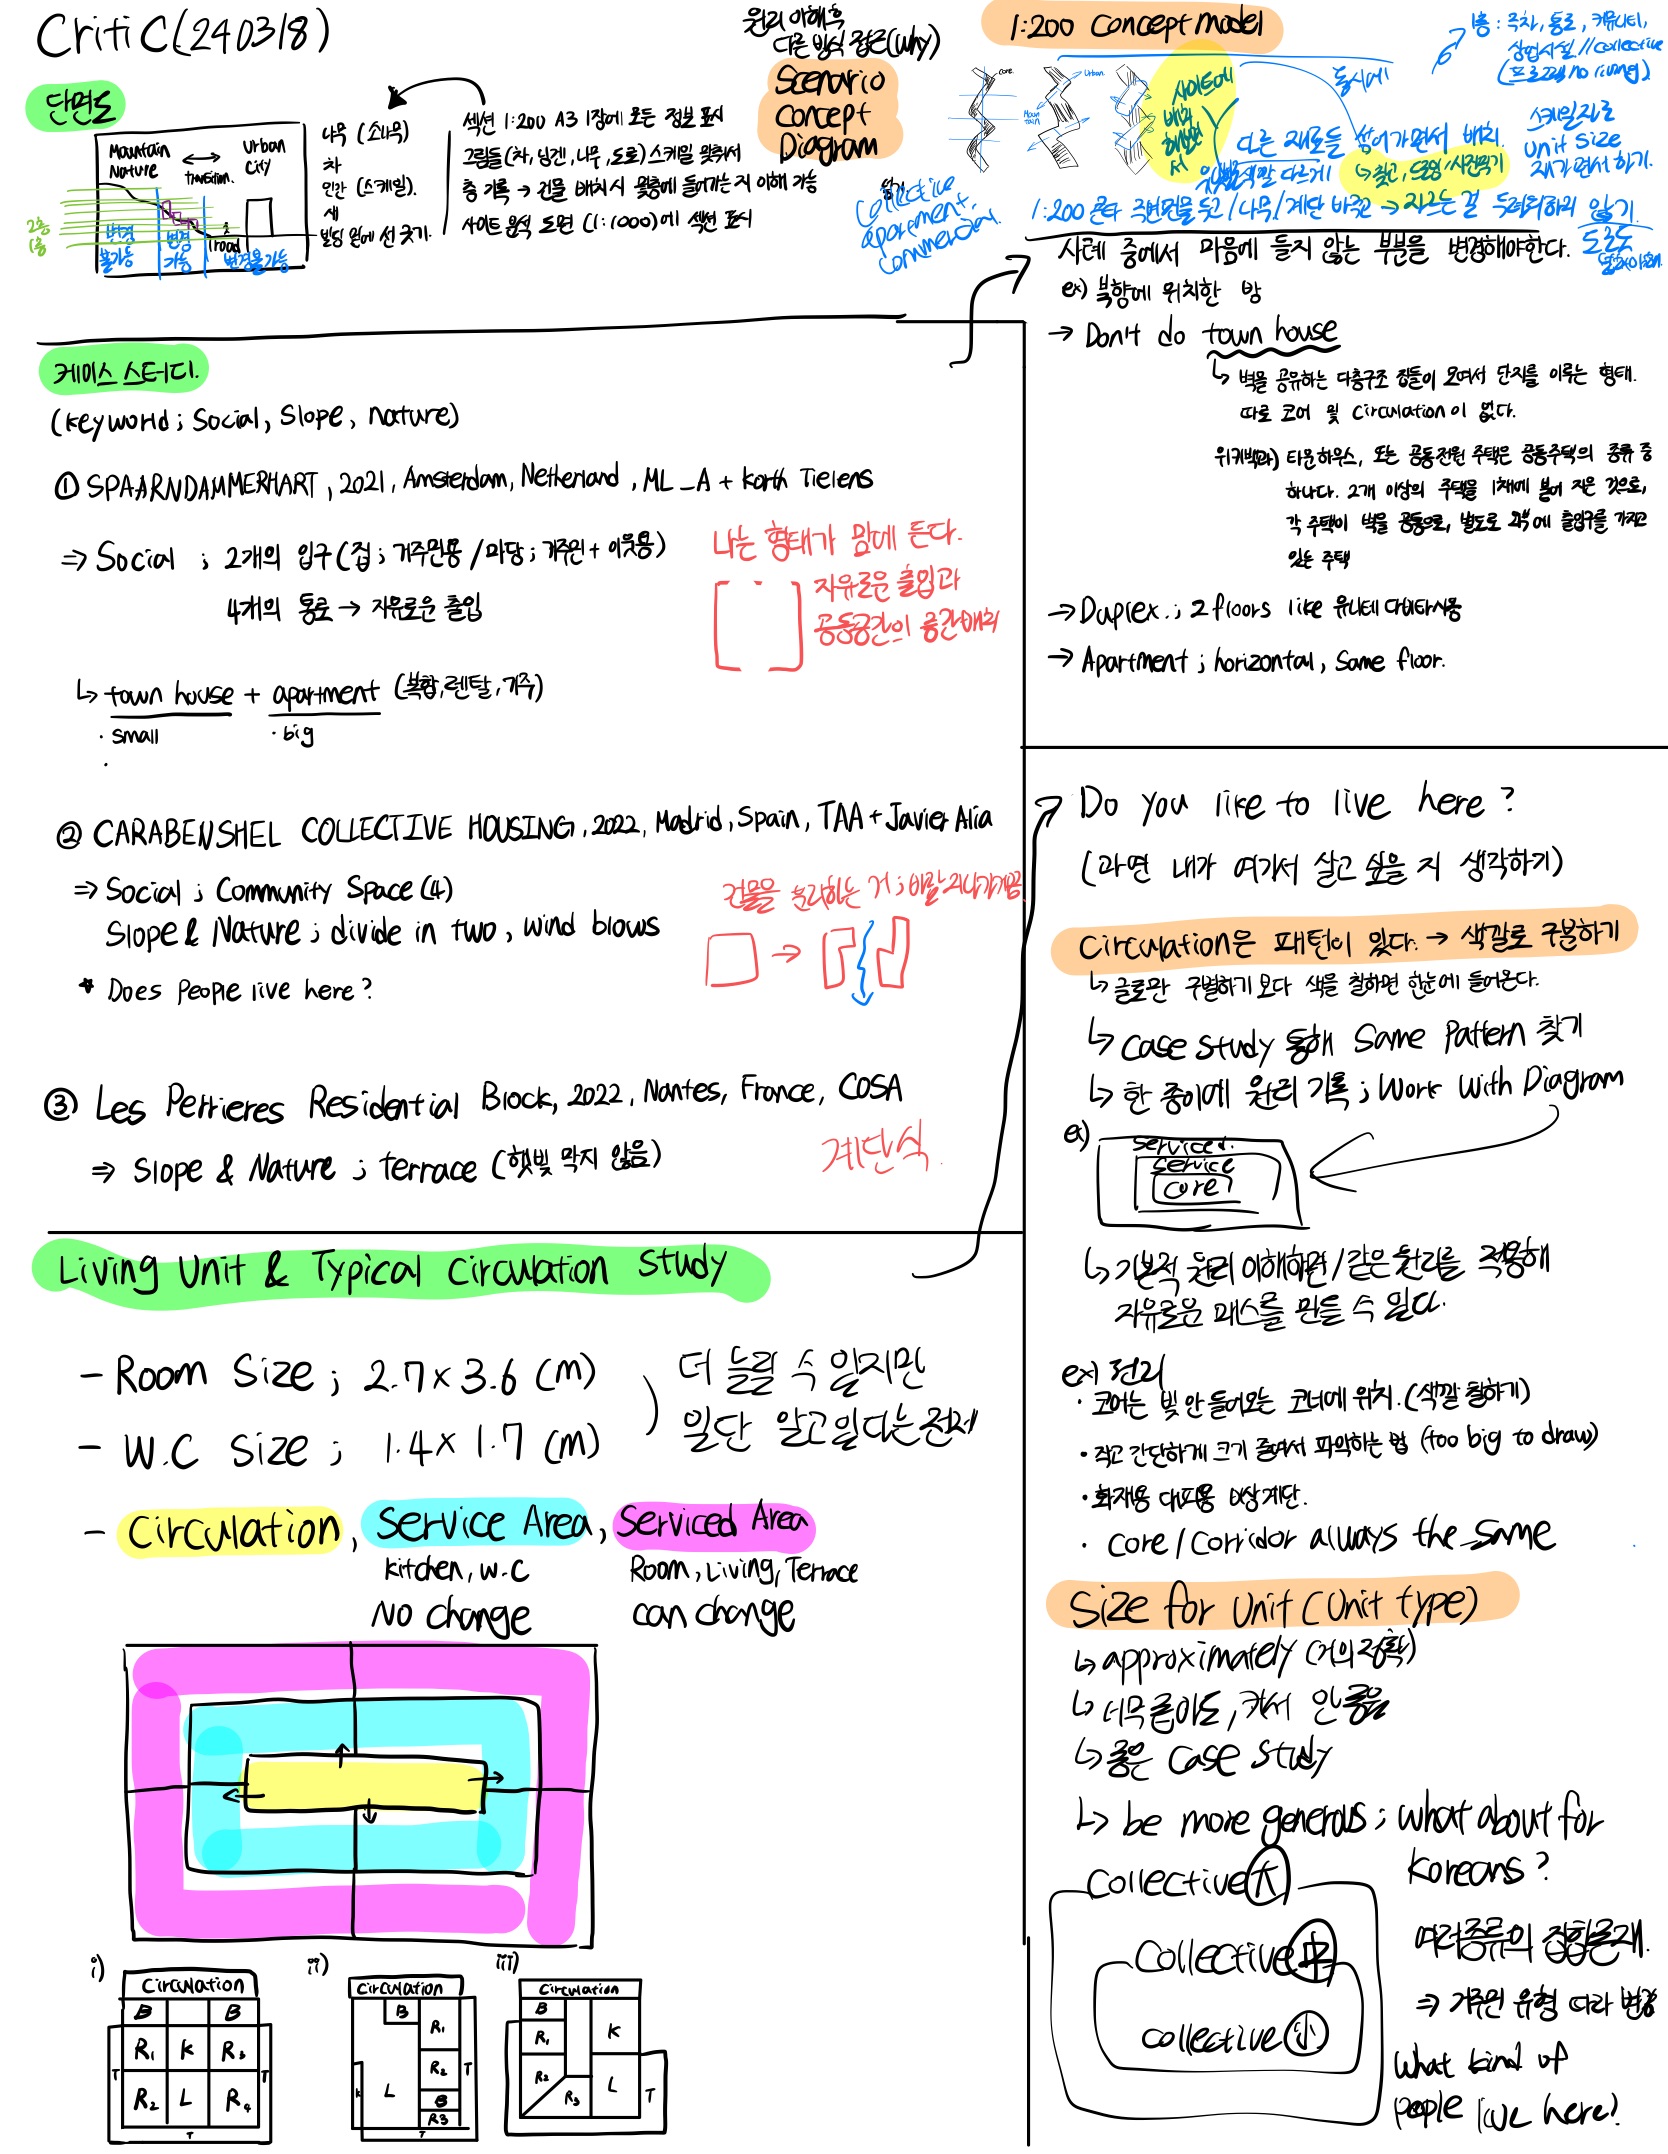 Critic(240318)
단면도
Mauntain
Nature
transition.
Urban
city
2층
1층
변경
불가능
변경
가능
road
변경불가능
나무 (소나무)
차
인간 (스케일).
새
빌딩 위에 선 긋기.
섹션 1:200 A3 1장에 모든 정보 표시
그림들 (차, 닝겐, 나무, 도로) 스케일 맞춰서
층 기록 → 건물 배치시 몇층에 들어가는지 이해 가능
사이트 분석 도면 (1:1000)에 섹션 표시
원리 이해후
다른 방식 접근(why)
Scenario
Concept
Diagram
1:200 Concept model
core
Urban
Moun
tain
사이트에
배치
해보면
서
동시에
1층 : 주차, 통로, 커뮤니티,
상업시설 // collective
(프로그램 no living)
다른 재료들 섞어가면서 배치.
색깔 다르게
↳ 찢고, 도망/사진찍기
스케일자로
Unit Size
재가면서 하기.
Collective
apartment,
commercial
1:200 콘타 주변면을 두고 / 나무 / 계단 바꾸고 → 자르는 걸 두려워하지 않기.
도로도
사례 중에서 마음에 들지 않는 부분을 변경해야한다.
ex) 북향에 위치한 방
→ Don't do town house
↳ 벽을 공유하는 다층구조 집들이 모여서 단지를 이루는 형태.
따로 코어 및 Circulation이 없다.
위키백과) 타운하우스, 또는 공동전원 주택은 공동주택의 종류 중
하나다. 2개 이상의 주택을 1채에 붙여 지은 것으로,
각 주택이 벽을 공동으로, 별도로 외부에 출입구를 가지고
있는 주택
→ Duplex.; 2 floors like 유니테 다비타시옹
→ Apartment ; horizontal, same floor.
케이스 스터디.
(keyworld ; Social, Slope, nature)
① SPAARNDAMMERHART, 2021, Amsterdam, Netherland, ML_A + Korth Tielens
⇒ Social ; 2개의 입구 (집 ; 거주민용 / 마당 ; 거주민 + 이웃용)
4개의 통로 → 자유로운 출입
나는 형태가 맘에 든다.
자유로운 출입과
공동공간의 중간배치
↳ town house + apartment (복합, 렌탈, 거주)
· small
· big
② CARABENSHEL COLLECTIVE HOUSING, 2022, Madrid, Spain, TAA + Javier Alia
⇒ Social ; Community Space (4)
Slope & Nature ; divide in two, wind blows
* Does people live here?
건물을 분리하는 거 ; 바람 지나가게끔
③ Les Perrieres Residential Block, 2022, Nantes, France, COSA
⇒ Slope & Nature ; terrace (햇빛 막지 않음)
계단식.
Living Unit & Typical Circulation Study
- Room Size ; 2.7 × 3.6 (m)
- W.C Size ; 1.4 × 1.7 (m)
더 늘릴 수 있지만
일단 알고있다는 전제
- Circulation, Service Area, Serviced Area
kitchen, w.c
No change
Room, Living, Terrace
can change
i)
Circulation
B B
R1 K R3
R2 L R4
T T
T
ii)
Circulation
B
R1
R2
B
R3
L
K
T
T
iii)
Circulation
B
R1
R2
R3
K
L
T
Do you like to live here?
(과연 내가 여기서 살고 싶을 지 생각하기)
Circulation은 패턴이 있다. → 색깔로 구분하기
↳ 글로만 구별하기 보다 색을 칠하면 한눈에 들어온다.
↳ case study 통해 Same Pattern 찾기
↳ 한 종이에 원리 기록 ; Work with Diagram
ex)
serviced.
service
core
↳ 기본적 원리 이해하면 / 같은 원리를 적용해
자유로운 매스를 만들 수 있다.
ex) 원리
· 코어는 빛 안 들어오는 코너에 위치. (색깔 칠하기)
· 작고 간단하게 크기 줄여서 파악하는 법 (too big to draw)
· 화재용 대피용 비상계단.
· core / Corridor always the same
Size for unit (Unit type)
↳ approximately (거의 정확)
↳ 너무 좁아도, 커서 안 좋음
↳ 좋은 case study
↳ be more generous ; what about for
Koreans?
Collective 大
Collective 中
collective 小
여러종류의 집합존재.
⇒ 거주민 유형 따라 변경
What kind of
people live here?